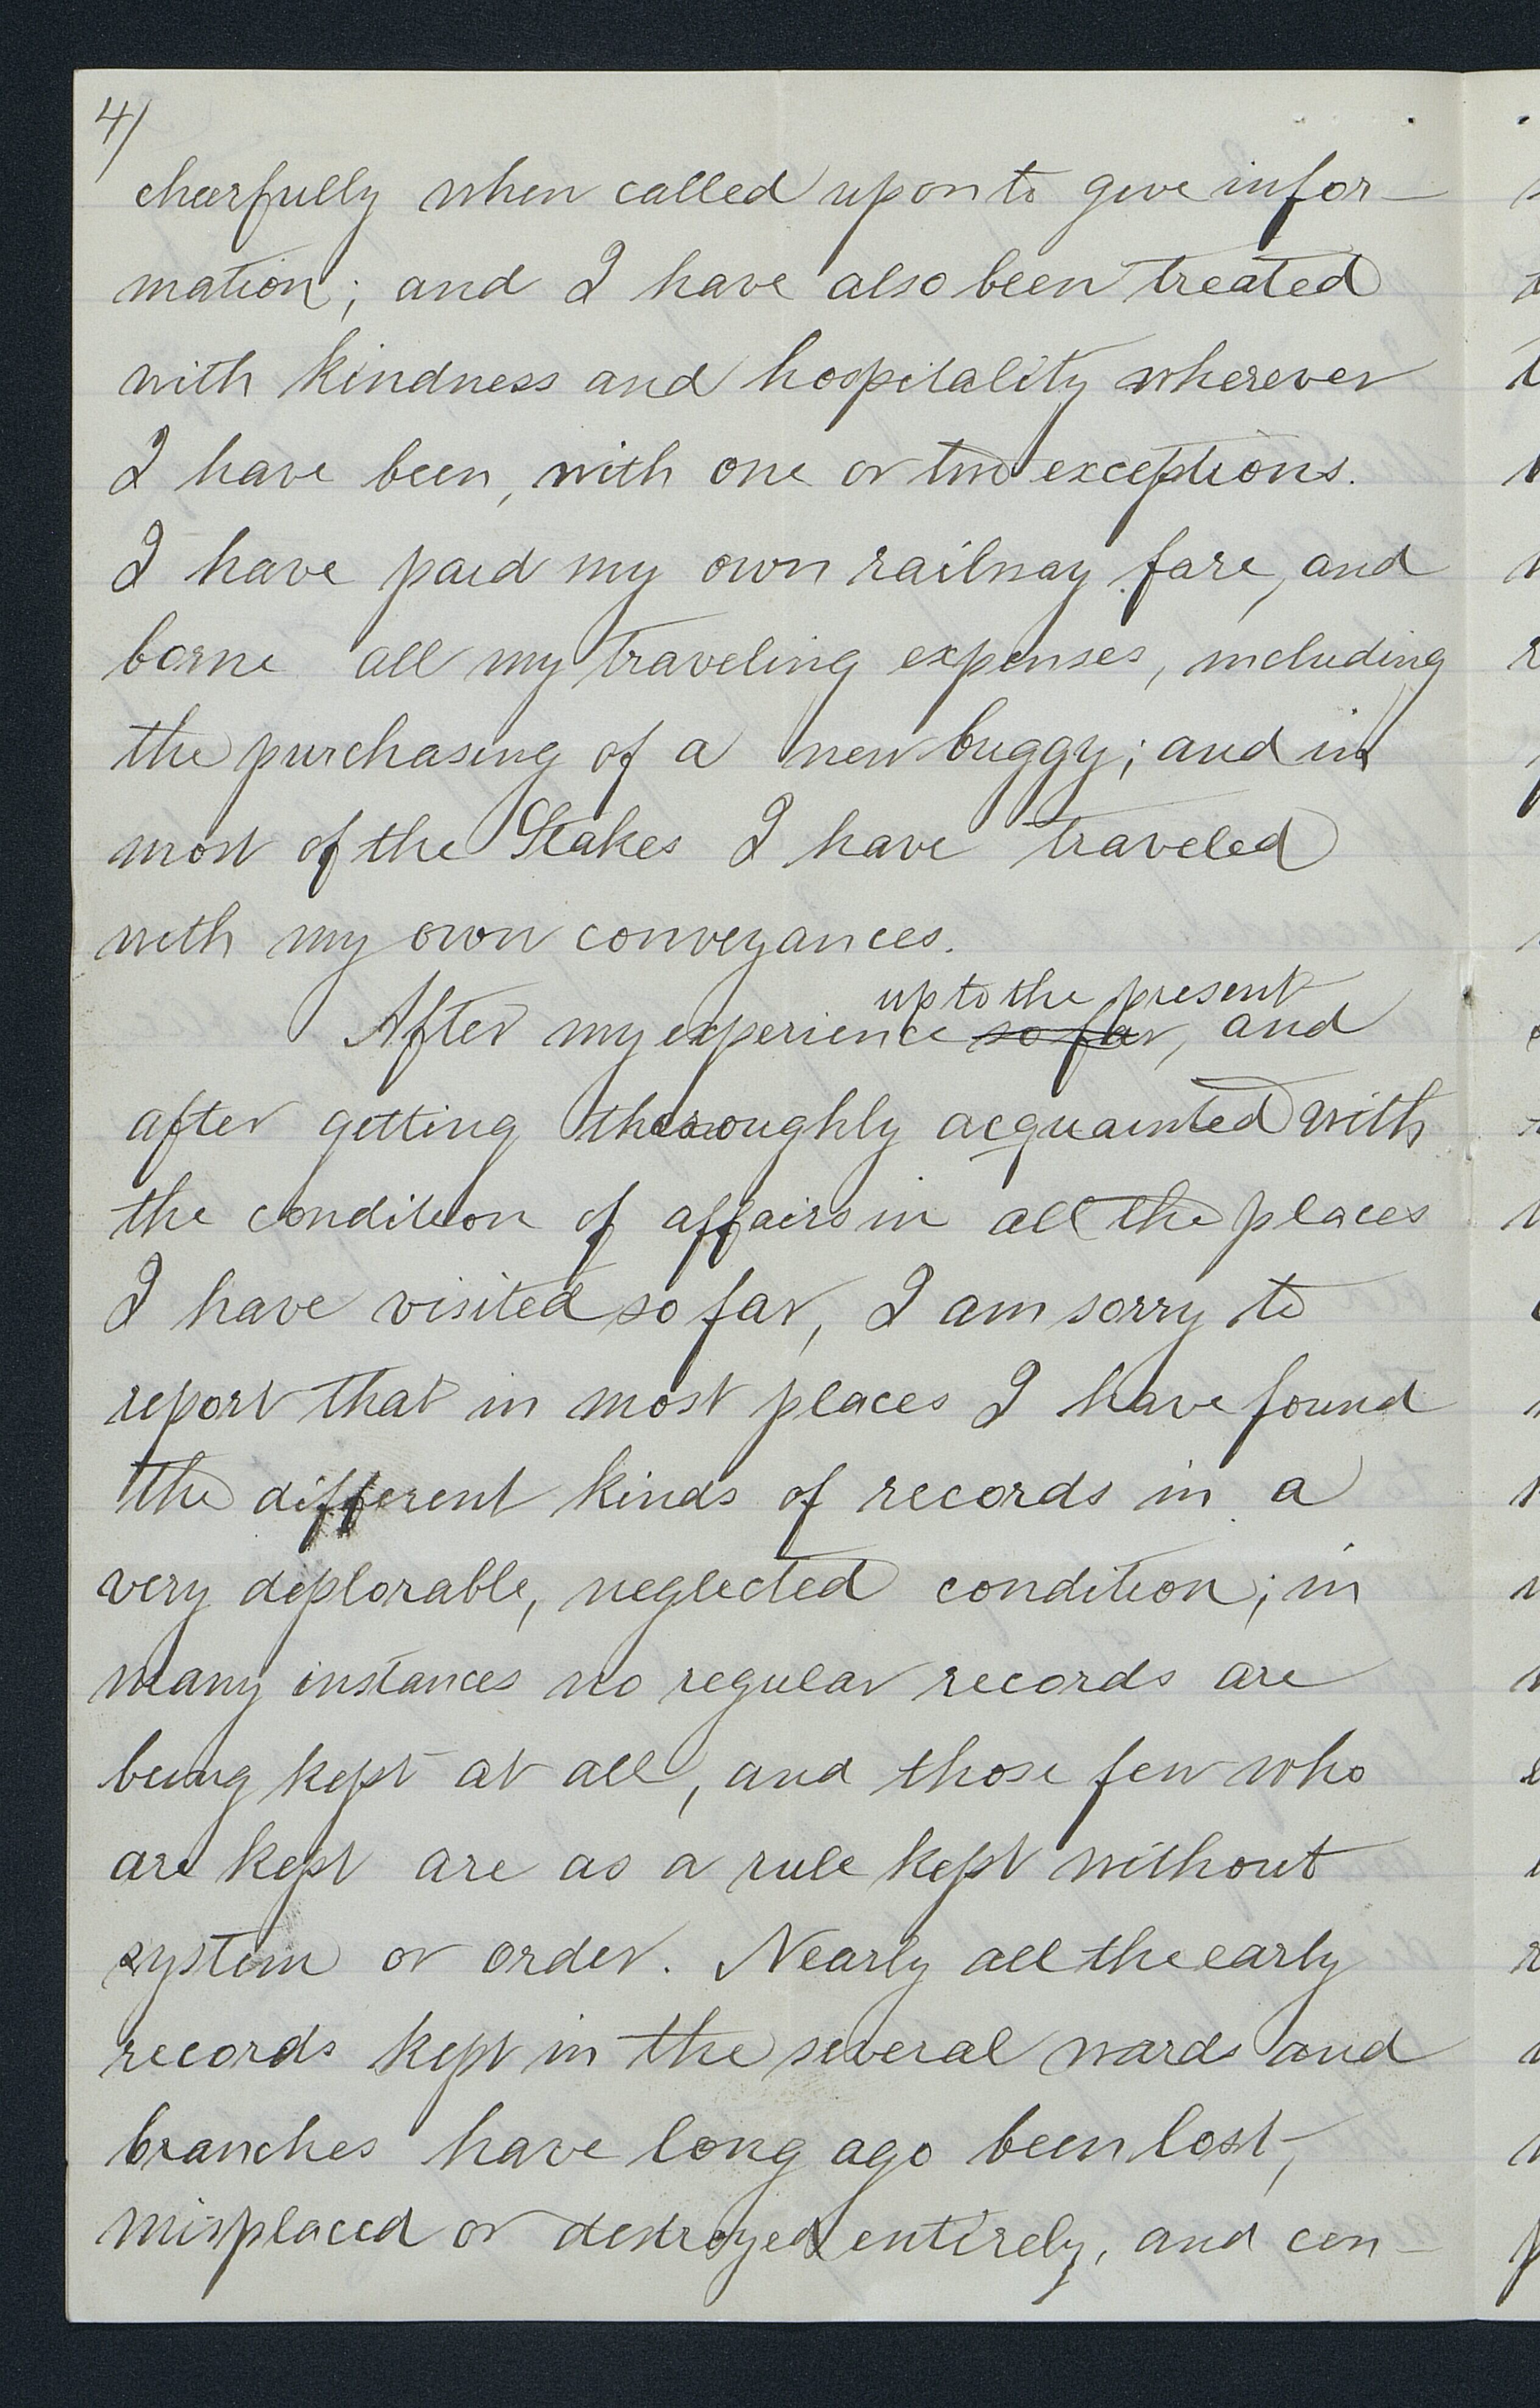 4/
cheerfully when called upon to give infor-
mation; and I have also been treated
with kindness and hospitality wherever
I have been, with one or two exceptions.
I have paid my own railway fare, and
borne all my traveling expenses, including
the purchasing of a new buggy; and in
most of the Stakes I have traveled
with my own conveyances.
up to the present
After my experience so far, and
after getting thoroughly acquainted with
the condition of affairs in all the places
I have visited so far, I am sorry to
report that in most places I have found
the different kinds of records in a
very deplorable, neglected condition; in
many instances no regular records are
being kept at all, and those few who
are kept are as a rule kept without
system or order. Nearly all the early
records kept in the several wards and
branches have long ago been lost,
misplaced or destroyed entirely, and con-